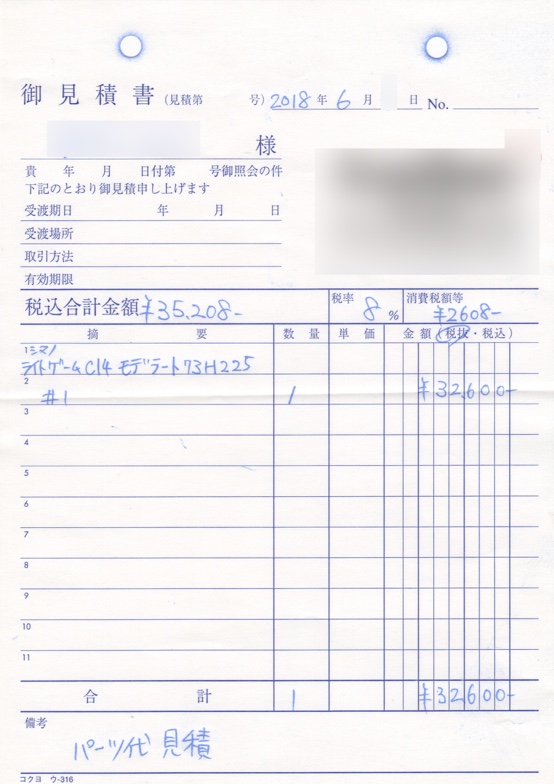 御見積書(見積第 号)2018年6月 日 No.
様
貴 年 月 日付第 号御照会の件
下記のとおり御見積申し上げます
受渡期日 年 月 日
受渡場所
取引方法
有効期限
税込合計金額¥35,208- 税率 8% 消費税額等 ¥2608-
摘要 数量 単価 金額(税抜・税込)
1 シマノ
ライトゲームCI4 モデラート73H225
2 #1 1 ¥32,600-
3
4
5
6
7
8
9
10
11
合計 1 ¥32,600-
備考
パーツ代 見積
コクヨ ウ-316